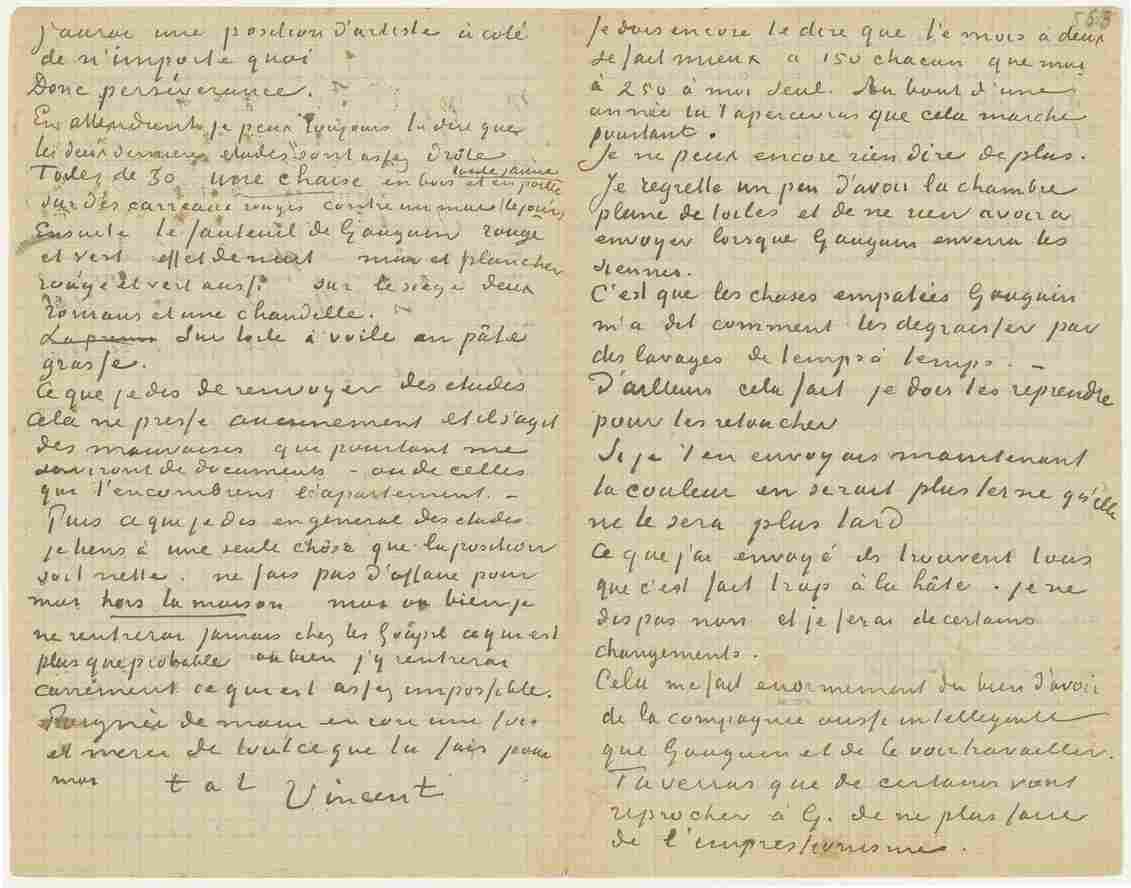 j'aurai une position d'artiste à coté
de n'importe quoi
Donc persévérance.
En attendant je peux toujours te dire que
les deux dernières etudes sont assez drôle
Toiles de 30 une chaise en bois et en paille
toute jaune
sur des carreaux rouges contre un mur (le jour)
Ensuite le fauteuil de Gauguin rouge
et vert effet de nuit mur et plancher
rouge et vert aussi sur le siège deux
romans et une chandelle.
Sur toile à voile en pâte
grasse.
Ce que je dis de renvoyer des etudes
Cela ne presse aucunement et il s'agit
des mauvaises que pourtant me
serviront de documents – ou de celles
qui t'encombrent l'apartement. –
Puis ce que je dis en general des etudes
je tiens à une seule chôse que la position
soit nette. ne fais pas d'affaire pour
moi hors la maison moi ou bien je
ne rentrerai jamais chez les Goûpil ce qui est
plus que probable ou bien j'y rentrerai
carrément ce qui est assez impossible.
Poignée de main encore une fois
et merci de tout ce que tu fais pour
moi t à t Vincent
563
Je dois encore te dire que le mois à deux
se fait mieux à 150 chacun que moi
à 250 à moi seul. Au bout d'une
année tu t'apercevras que cela marche
pourtant.
Je ne peux encore rien dire de plus.
Je regrette un peu d'avoir la chambre
pleine de toiles et de ne rien avoir à
envoyer lorsque Gauguin enverra les
siennes.
C'est que les choses empatées Gauguin
m'a dit comment les degraisser par
des lavages de temps à temps. –
D'ailleurs cela fait je dois les reprendre
pour les retoucher
Si je t'en envoyais maintenant
la couleur en serait plus terne qu'elle
ne le sera plus tard
Ce que j'ai envoyé ils trouvent tous
que c'est fait trop à la hâte. je ne
dis pas non et je ferai de certains
changements.
Cela me fait enormement du bien d'avoir
de la compagnie aussi intelligente
que Gauguin et de le voir travailler.
Tu verras que de certains vont
reprocher à G. de ne plus faire
de l'impressionisme.